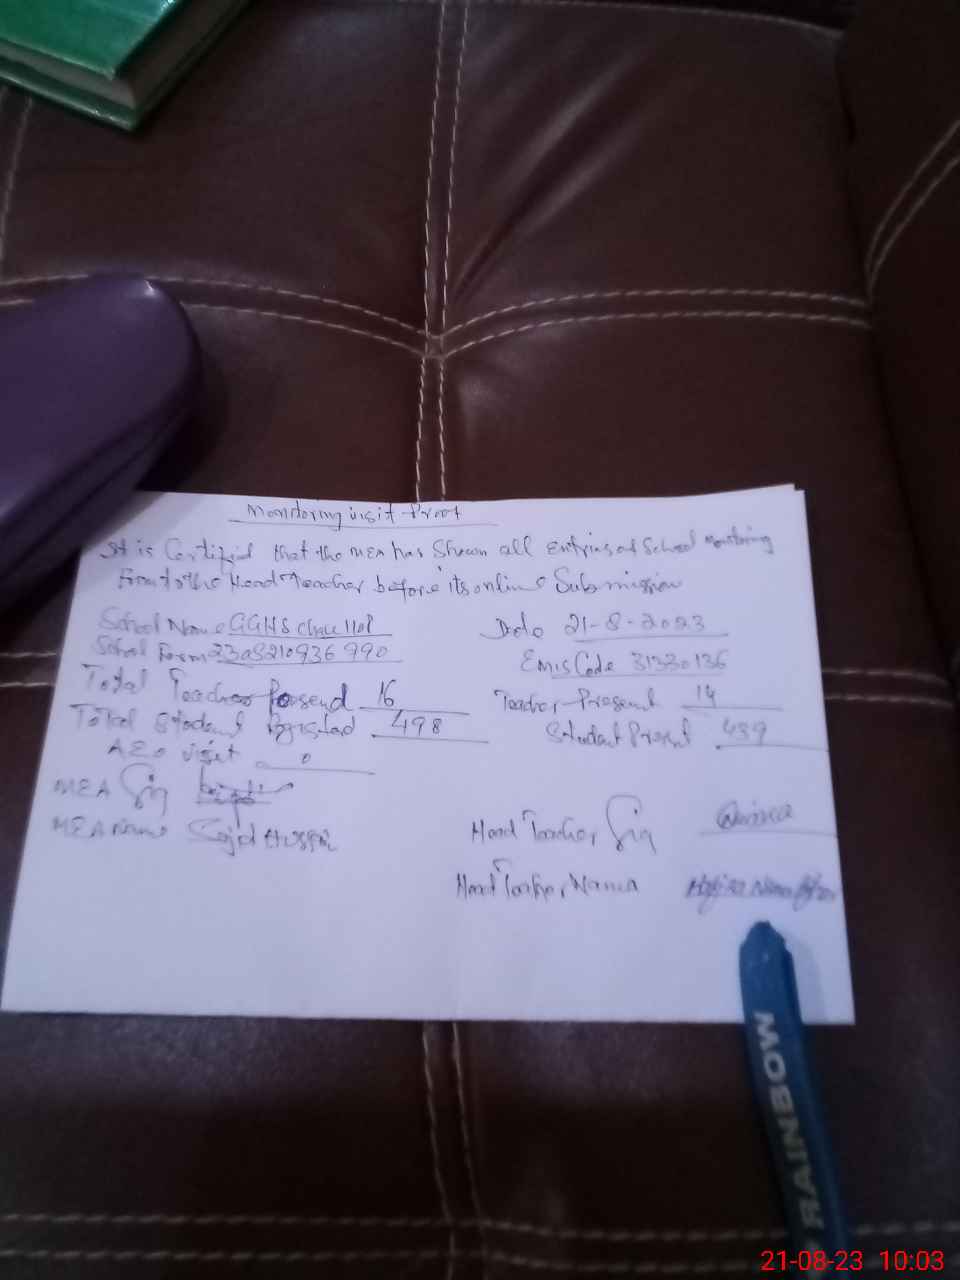 Monitoring visit Proof
It is Certified that the MEA has Shown all Entries of School Monitoring
Form to the Head Teacher before its online Submission
School Name GGHS
Date 21-8-2023
School Form 2308210936990
Emis Code 31330136
Total Teacher 16
Teacher Present 14
Total Student 498
Student Present 439
AEO visit 0
MEA Sig
MEA Name Sajid Hussain
Head Teacher Sig
Head Teacher Name
RAINBOW
21-08-23 10:03